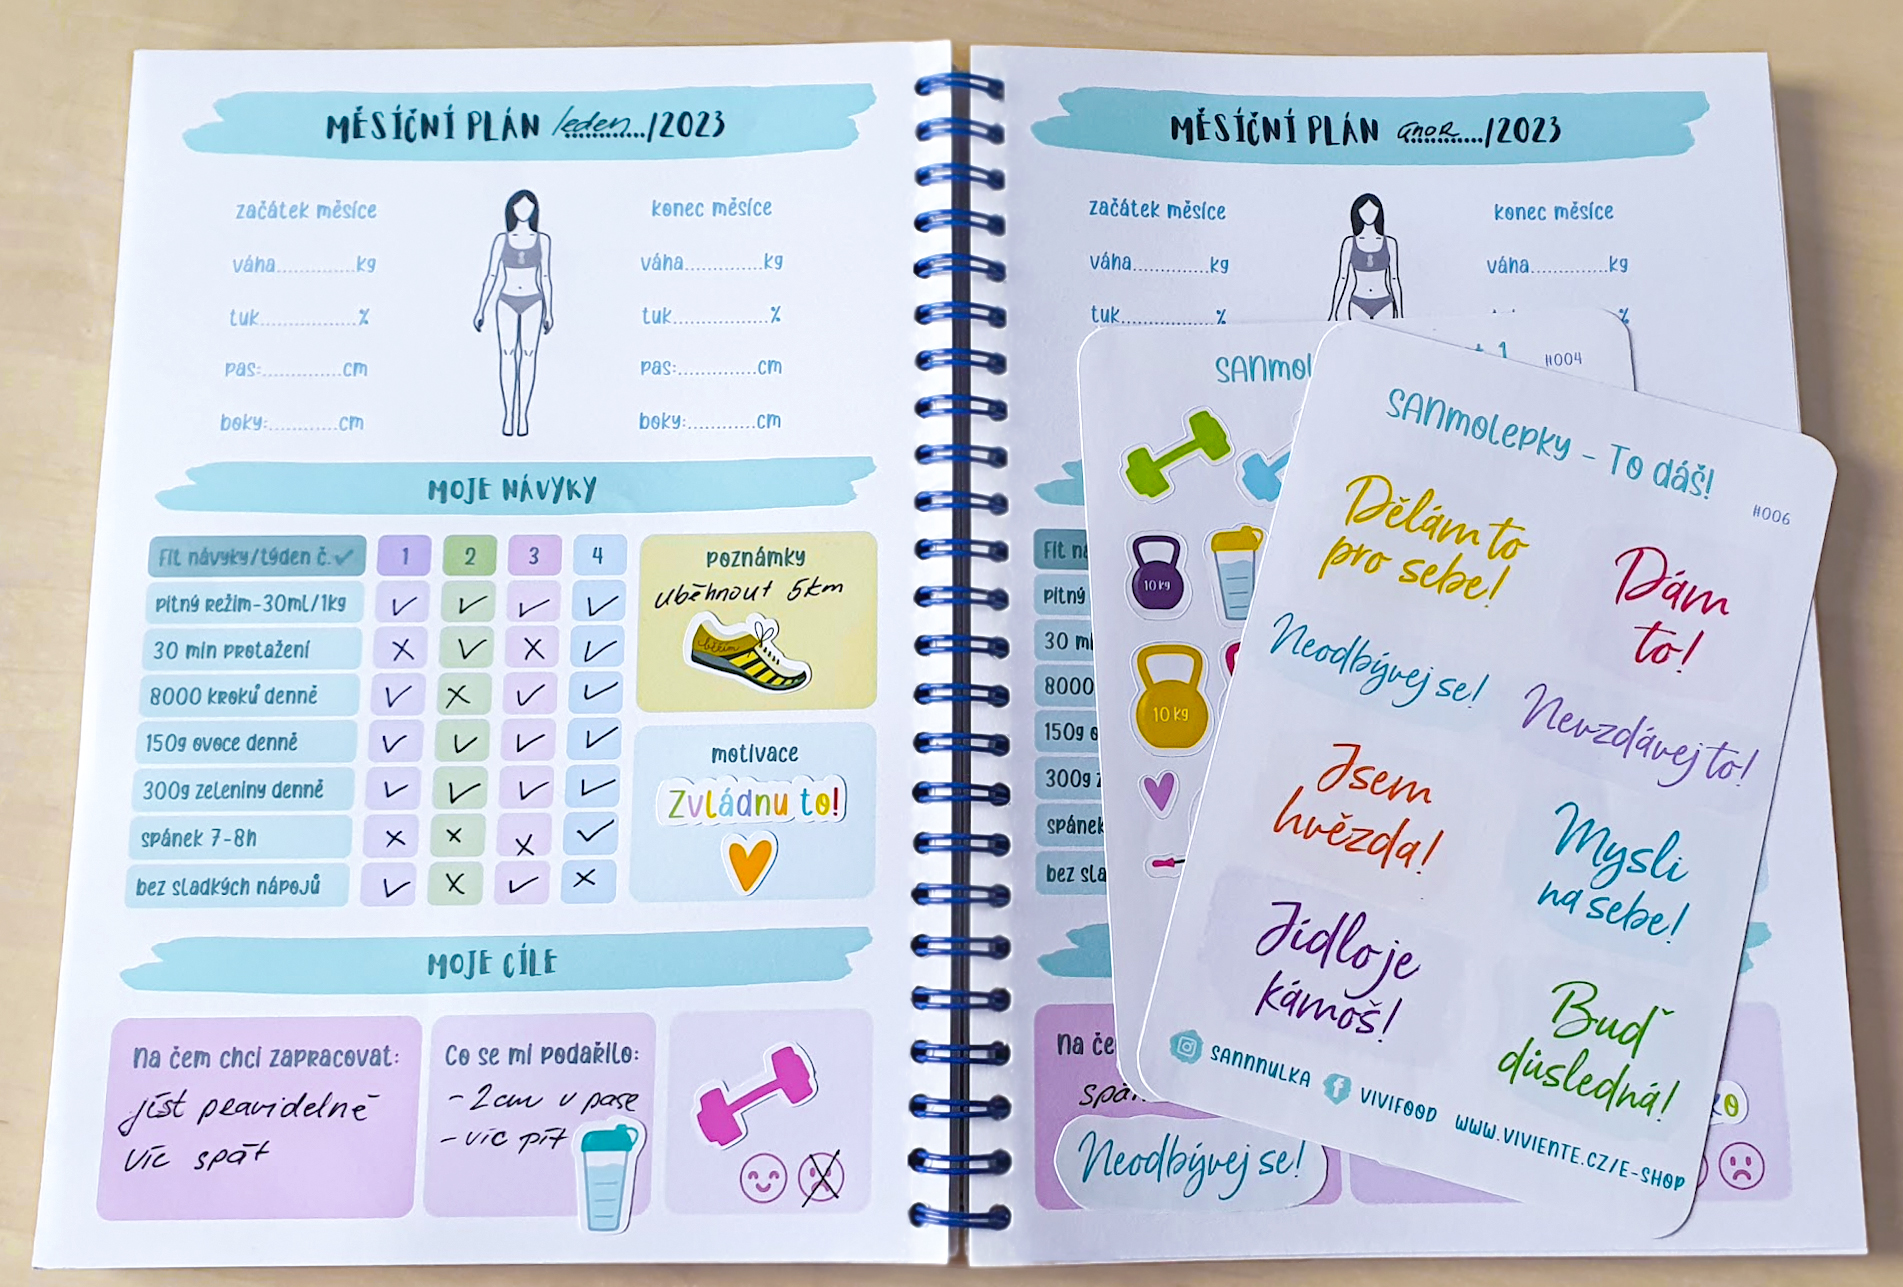 MĚSÍČNÍ PLÁN leden.../2023
začátek měsíce
konec měsíce
váha.............kg
váha.............kg
tuk................%
tuk................%
pas:.............cm
pas:.............cm
boky:............cm
boky:............cm
MOJE NÁVYKY
Fit návyky/týden č. ✓ 1 2 3 4
pitný režim-30ml/1kg ✓ ✓ ✓ ✓
30 min protažení X ✓ X ✓
8000 kroků denně ✓ X ✓ ✓
150g ovoce denně ✓ ✓ ✓ ✓
300g zeleniny denně ✓ ✓ ✓ ✓
spánek 7-8h X X X ✓
bez sladkých nápojů ✓ X ✓ X
poznámky
uběhnout 5km
běhám
motivace
Zvládnu to!
MOJE CÍLE
Na čem chci zapracovat:
jíst pravidelně
víc spát
Co se mi podařilo:
- 2cm v pase
- víc pít
MĚSÍČNÍ PLÁN únor.../2023
začátek měsíce
konec měsíce
váha.............kg
váha.............kg
tuk................%
%
Fit ná
pitný
30 mi
8000
150g o
300g z
spánek
bez sla
Na če
spán
Neodbývej se!
SANmol
1
#004
10 kg
10 kg
SANmolepky - To dáš!
#006
Dělám to
pro sebe!
Dám
to!
Neodbývej se!
Nevzdávej to!
Jsem
hvězda!
Mysli
na sebe!
Jídlo je
kámoš!
Buď
důsledná!
SANNNULKA
VIVIFOOD
WWW.VIVIENTE.CZ/E-SHOP